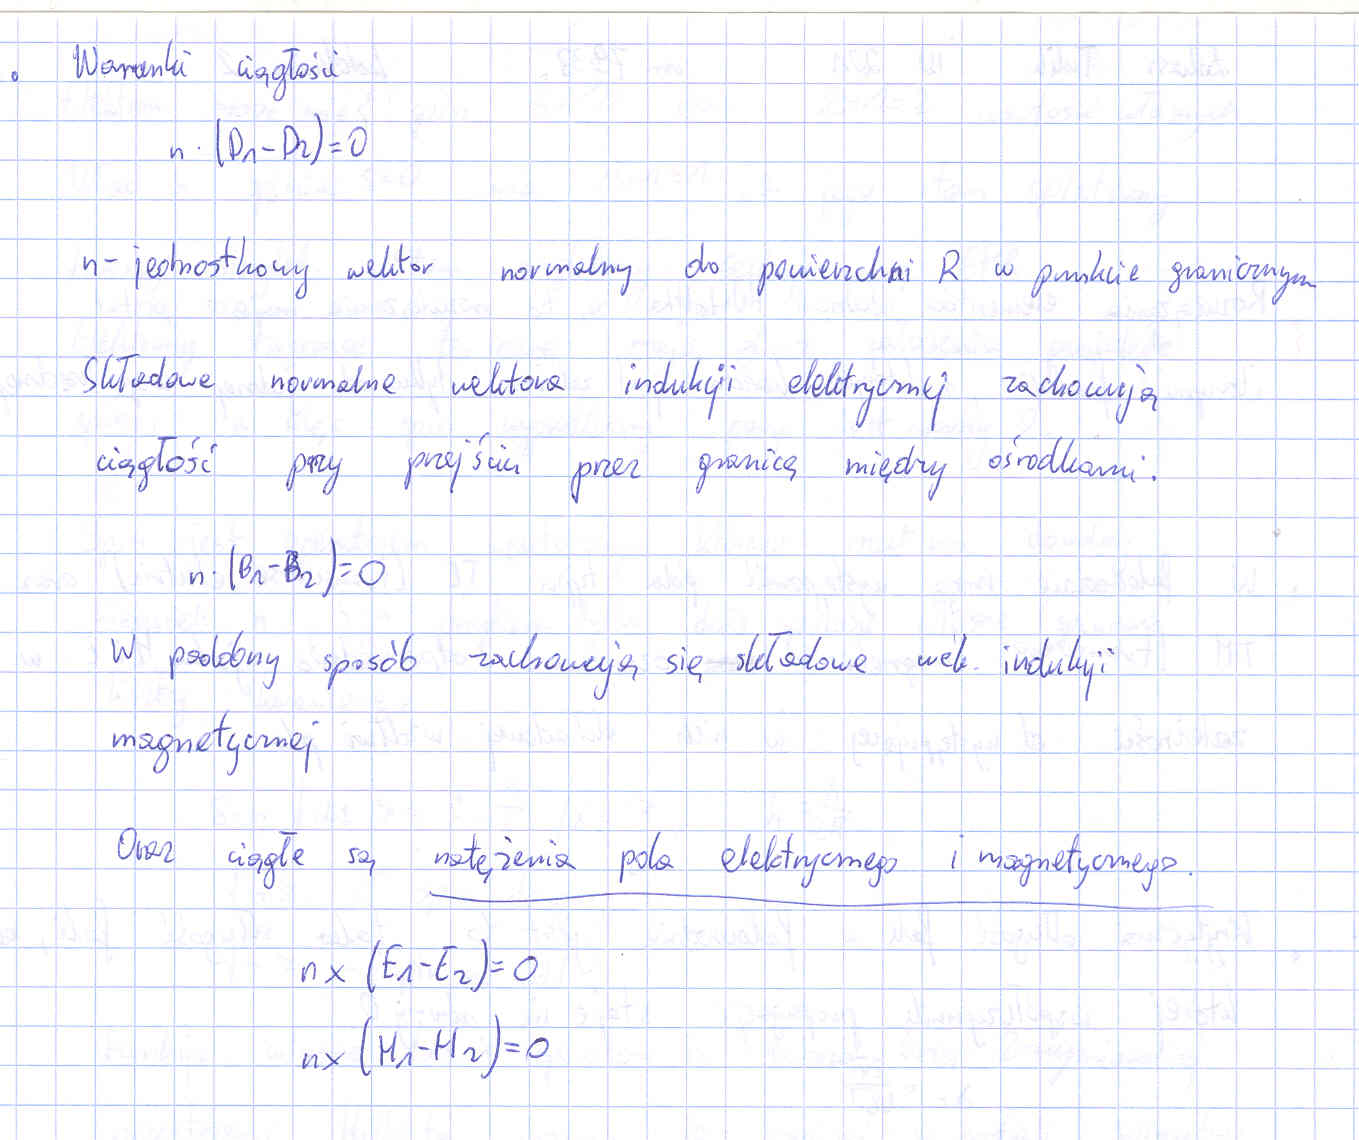 . Warunki ciągłości
n · (D₁-D₂)=0
n- jednostkowy wektor normalny do powierzchni R w punkcie granicznym
Składowe normalne wektora indukcji elektrycznej zachowują
ciągłość przy przejściu przez granicę między ośrodkami.
n·(B₁-B₂)=0
W podobny sposób zachowują się składowe wek. indukcji
magnetycznej
Oraz ciągłe są natężenia pola elektrycznego i magnetycznego.
n x (E₁-E₂)=0
n x (H₁-H₂)=0